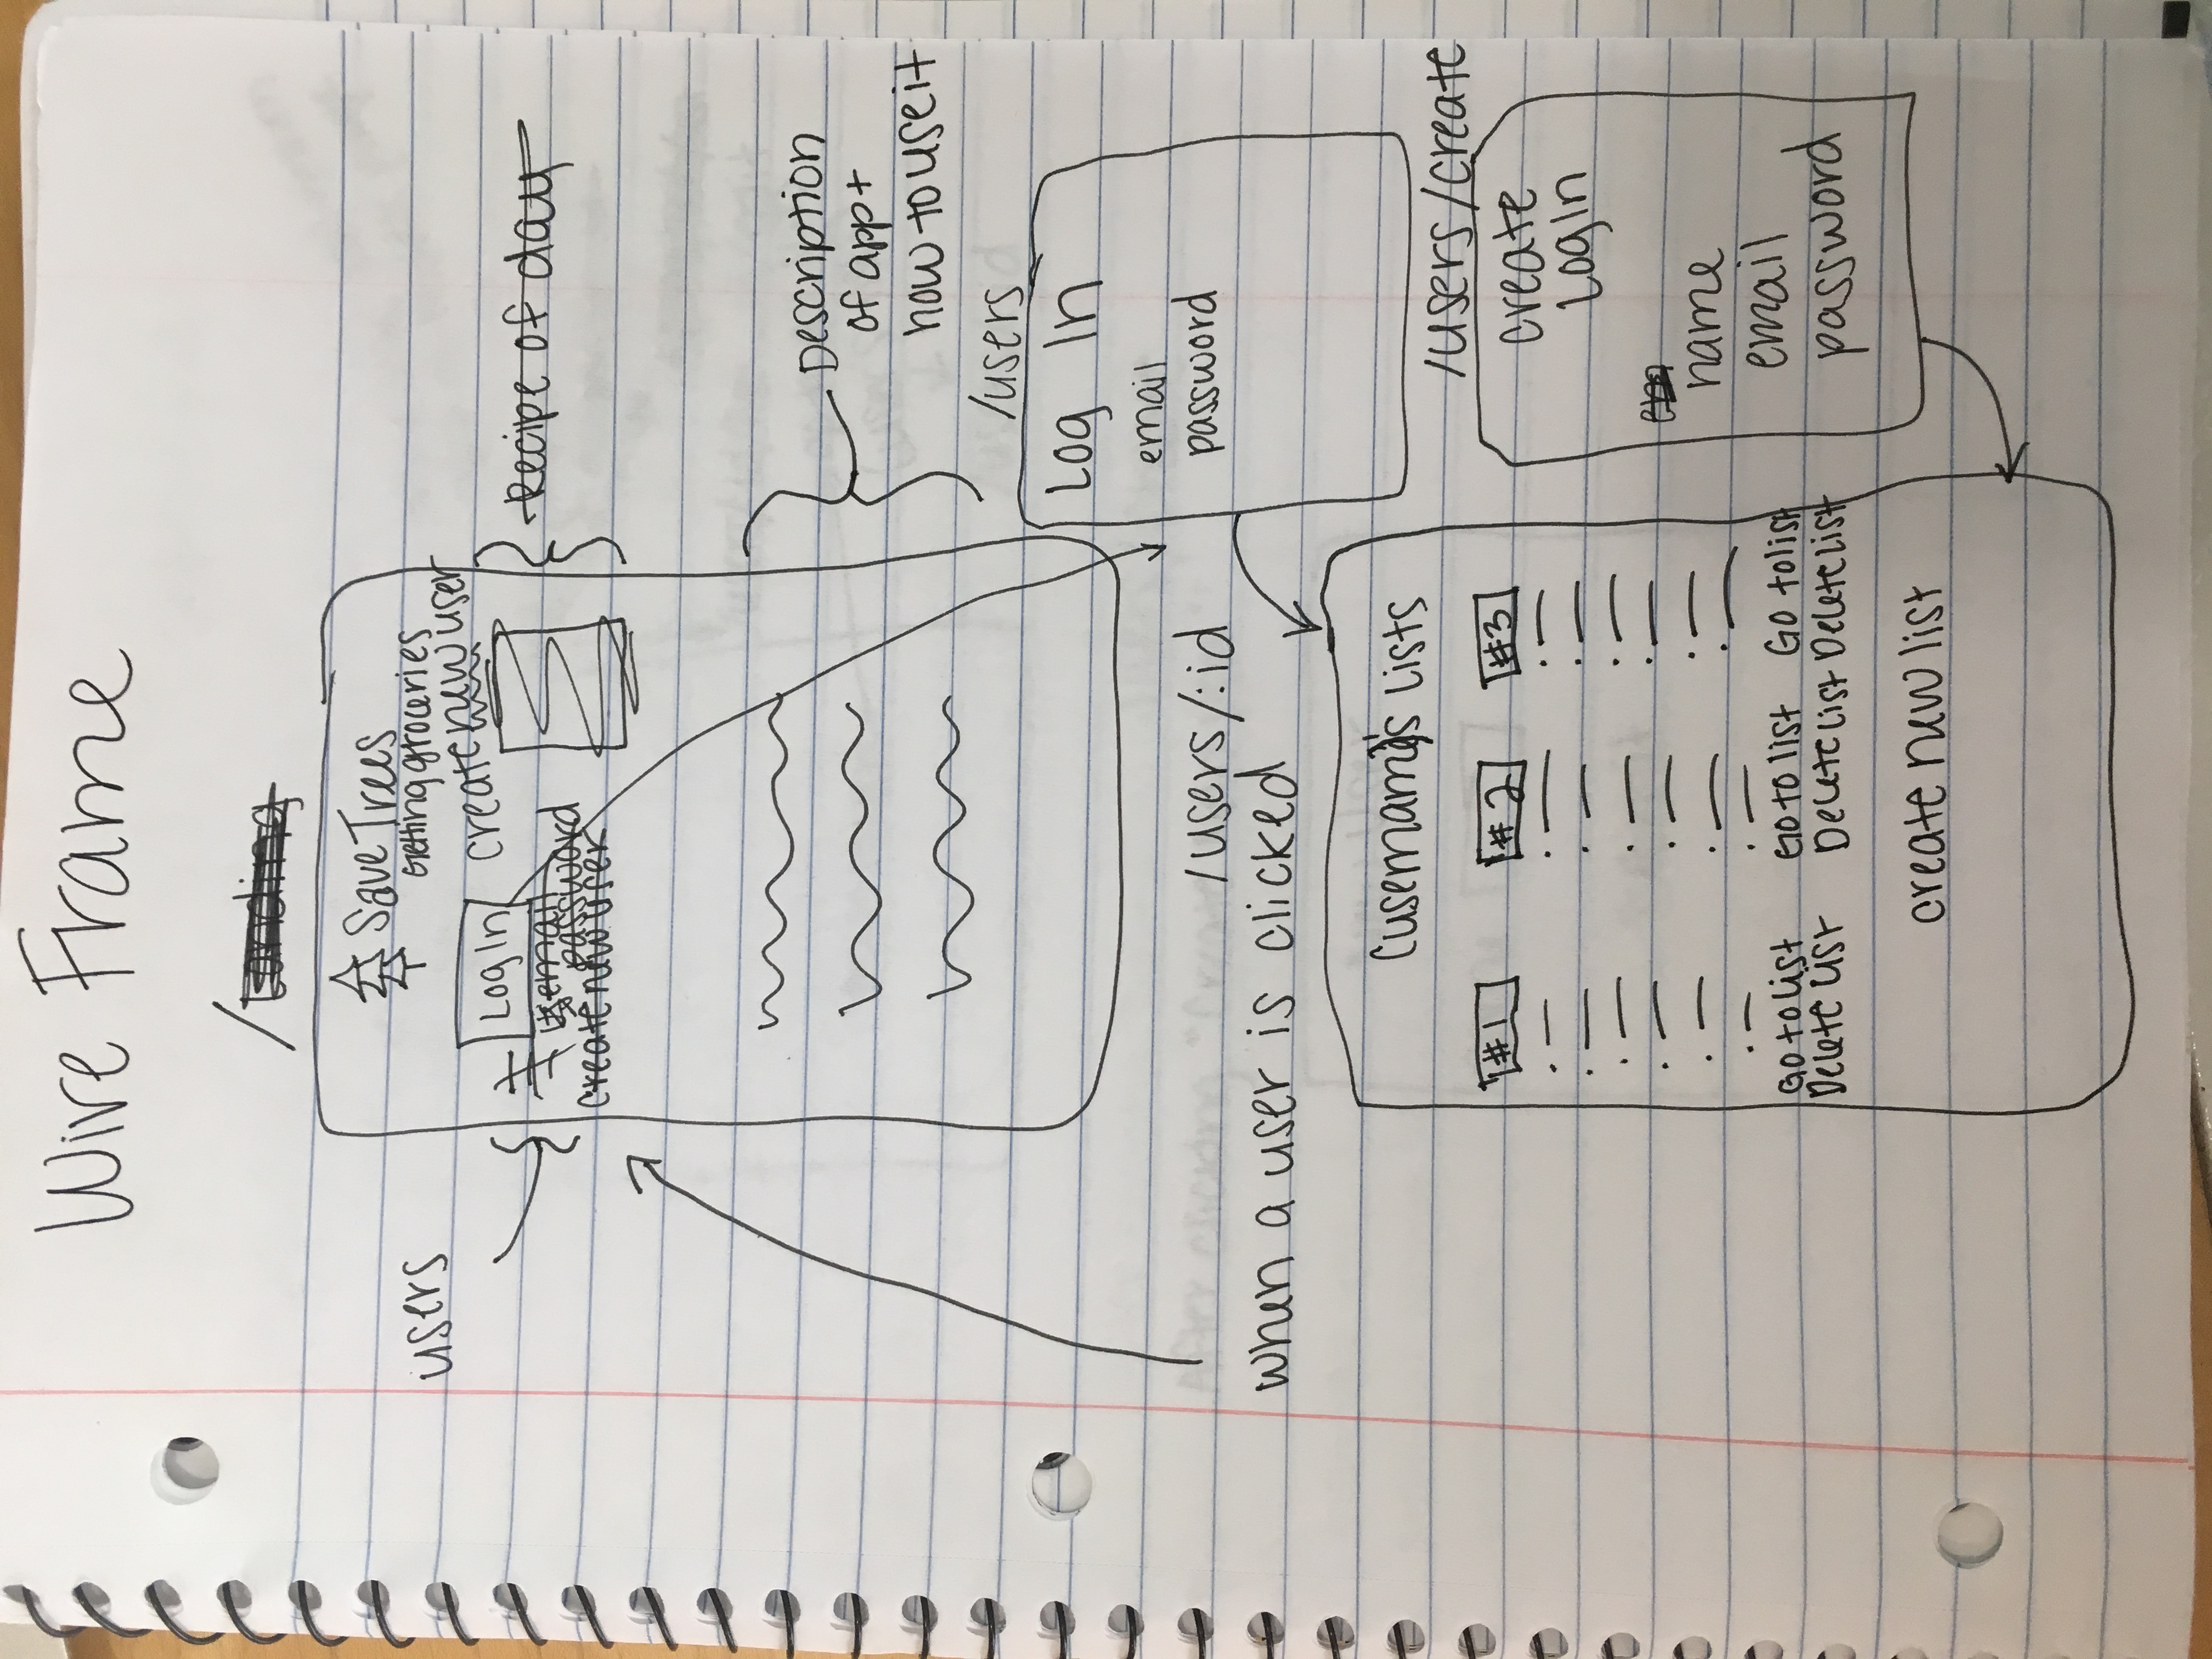 Wire Frame
/Landing
Save Trees
Getting groceries
users
create new user
Log In
Recipe of day
email
password
create new user
Description
of app +
how to use it
/users
Log In
email
password
/users/:id
when a user is clicked
(username)'s Lists
#1 #2 #3
Go to list Go to list Go to list
Delete List Delete list Delete list
create new list
/users/create
create
Log In
name
email
password